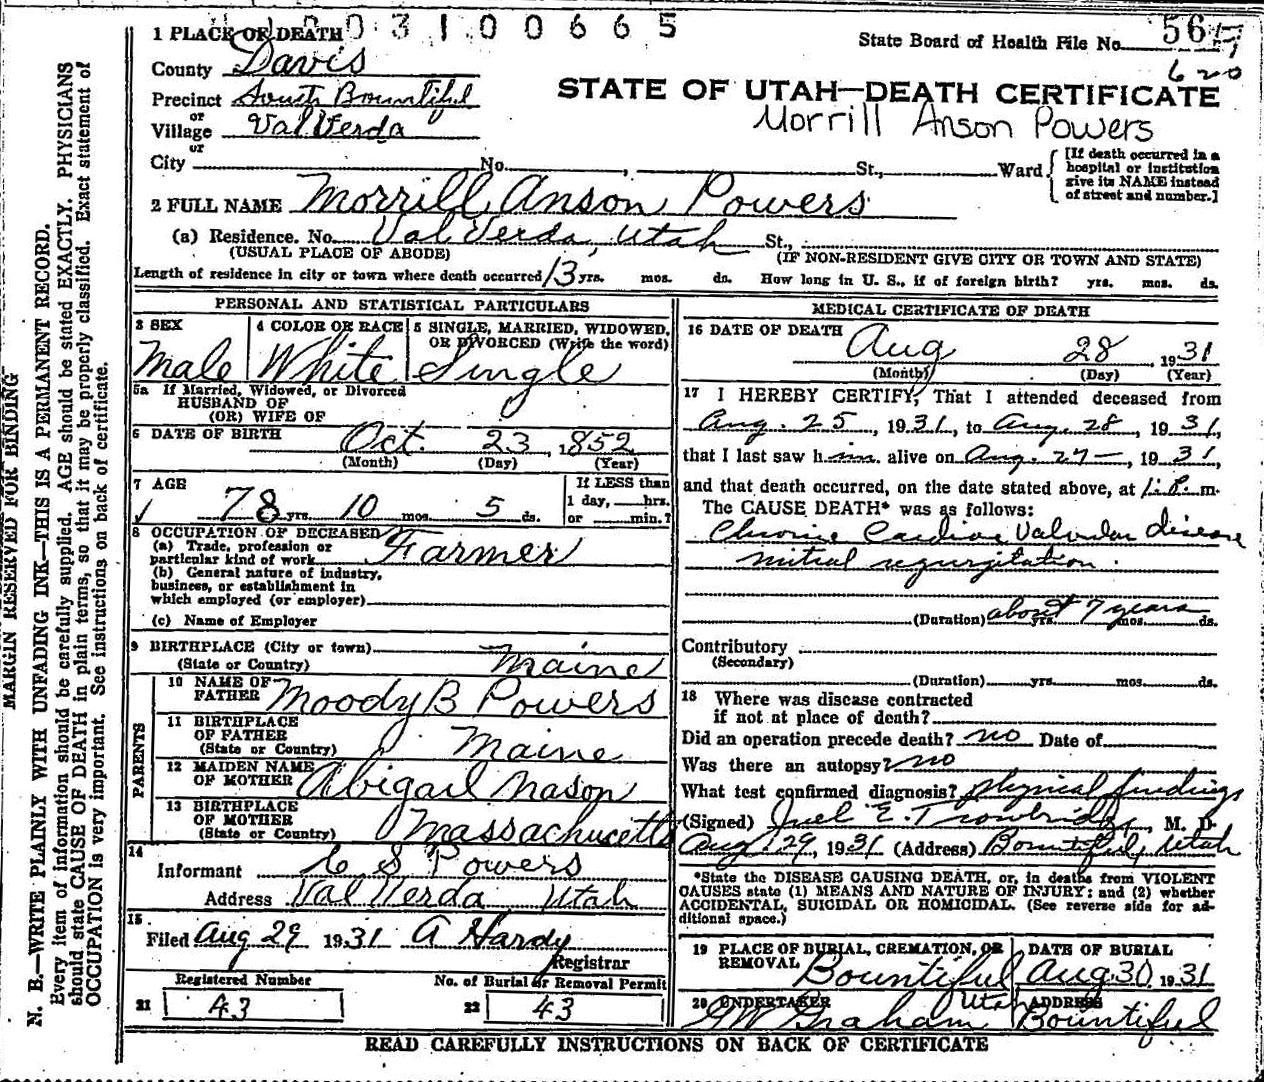 1 PLACE OF DEATH 003100665
State Board of Health File No. 56
620
County Davis
Precinct South Bountiful
or
Village Val Verda
or
STATE OF UTAH—DEATH CERTIFICATE
Morrill Anson Powers
City No. , St., Ward
[If death occurred in a
hospital or institution
give its NAME instead
of street and number.]
2 FULL NAME Morrill Anson Powers
(a) Residence. No. Val Verda, Utah St.,
(USUAL PLACE OF ABODE) (IF NON-RESIDENT GIVE CITY OR TOWN AND STATE)
Length of residence in city or town where death occurred 13 yrs. mos. ds. How long in U. S., if of foreign birth? yrs. mos. ds.
PERSONAL AND STATISTICAL PARTICULARS
3 SEX
Male
4 COLOR OR RACE
White
5 SINGLE, MARRIED, WIDOWED,
OR DIVORCED (Write the word)
Single
5a If Married, Widowed, or Divorced
HUSBAND OF
(OR) WIFE OF
6 DATE OF BIRTH Oct. 23, 1852
(Month) (Day) (Year)
7 AGE
78 yrs. 10 mos. 5 ds.
If LESS than
1 day, hrs.
or min.?
8 OCCUPATION OF DECEASED
(a) Trade, profession or
particular kind of work Farmer
(b) General nature of industry,
business, or establishment in
which employed (or employer)
(c) Name of Employer
9 BIRTHPLACE (City or town)
(State or Country) Maine
PARENTS
10 NAME OF
FATHER Moody B Powers
11 BIRTHPLACE
OF FATHER
(State or Country) Maine
12 MAIDEN NAME
OF MOTHER Abigail Nason
13 BIRTHPLACE
OF MOTHER
(State or Country) Massachusetts
14
Informant C S Powers
Address Val Verda Utah
15
Filed Aug 29 1931 A Hardy
Registrar
Registered Number
21 43
No. of Burial or Removal Permit
22 43
MEDICAL CERTIFICATE OF DEATH
16 DATE OF DEATH Aug 28 1931
(Month) (Day) (Year)
17 I HEREBY CERTIFY, That I attended deceased from
Aug. 25, 1931, to Aug. 28, 1931,
that I last saw him alive on Aug. 27, 1931,
and that death occurred, on the date stated above, at 1:P.m.
The CAUSE DEATH* was as follows:
Chronic Cardiac Valvular Disease
mitral regurgitation.
(Duration) about 7 years yrs. mos. ds.
Contributory
(Secondary)
(Duration) yrs. mos. ds.
18 Where was disease contracted
if not at place of death?
Did an operation precede death? no Date of
Was there an autopsy? no
What test confirmed diagnosis? physical findings
(Signed) Juel E. Trowbridge, M. D.
Aug. 29, 1931 (Address) Bountiful, Utah
*State the DISEASE CAUSING DEATH, or, in deaths from VIOLENT
CAUSES state (1) MEANS AND NATURE OF INJURY; and (2) whether
ACCIDENTAL, SUICIDAL OR HOMICIDAL. (See reverse side for ad-
ditional space.)
19 PLACE OF BURIAL, CREMATION, OR
REMOVAL Bountiful Utah
DATE OF BURIAL
Aug 30 1931
20 UNDERTAKER
GW Graham
ADDRESS
Bountiful
READ CAREFULLY INSTRUCTIONS ON BACK OF CERTIFICATE
MARGIN RESERVED FOR BINDING
N. B.—WRITE PLAINLY WITH UNFADING INK—THIS IS A PERMANENT RECORD.
Every item of information should be carefully supplied. AGE should be stated EXACTLY. PHYSICIANS
should state CAUSE OF DEATH in plain terms, so that it may be properly classified. Exact statement of
OCCUPATION is very important. See instructions on back of certificate.